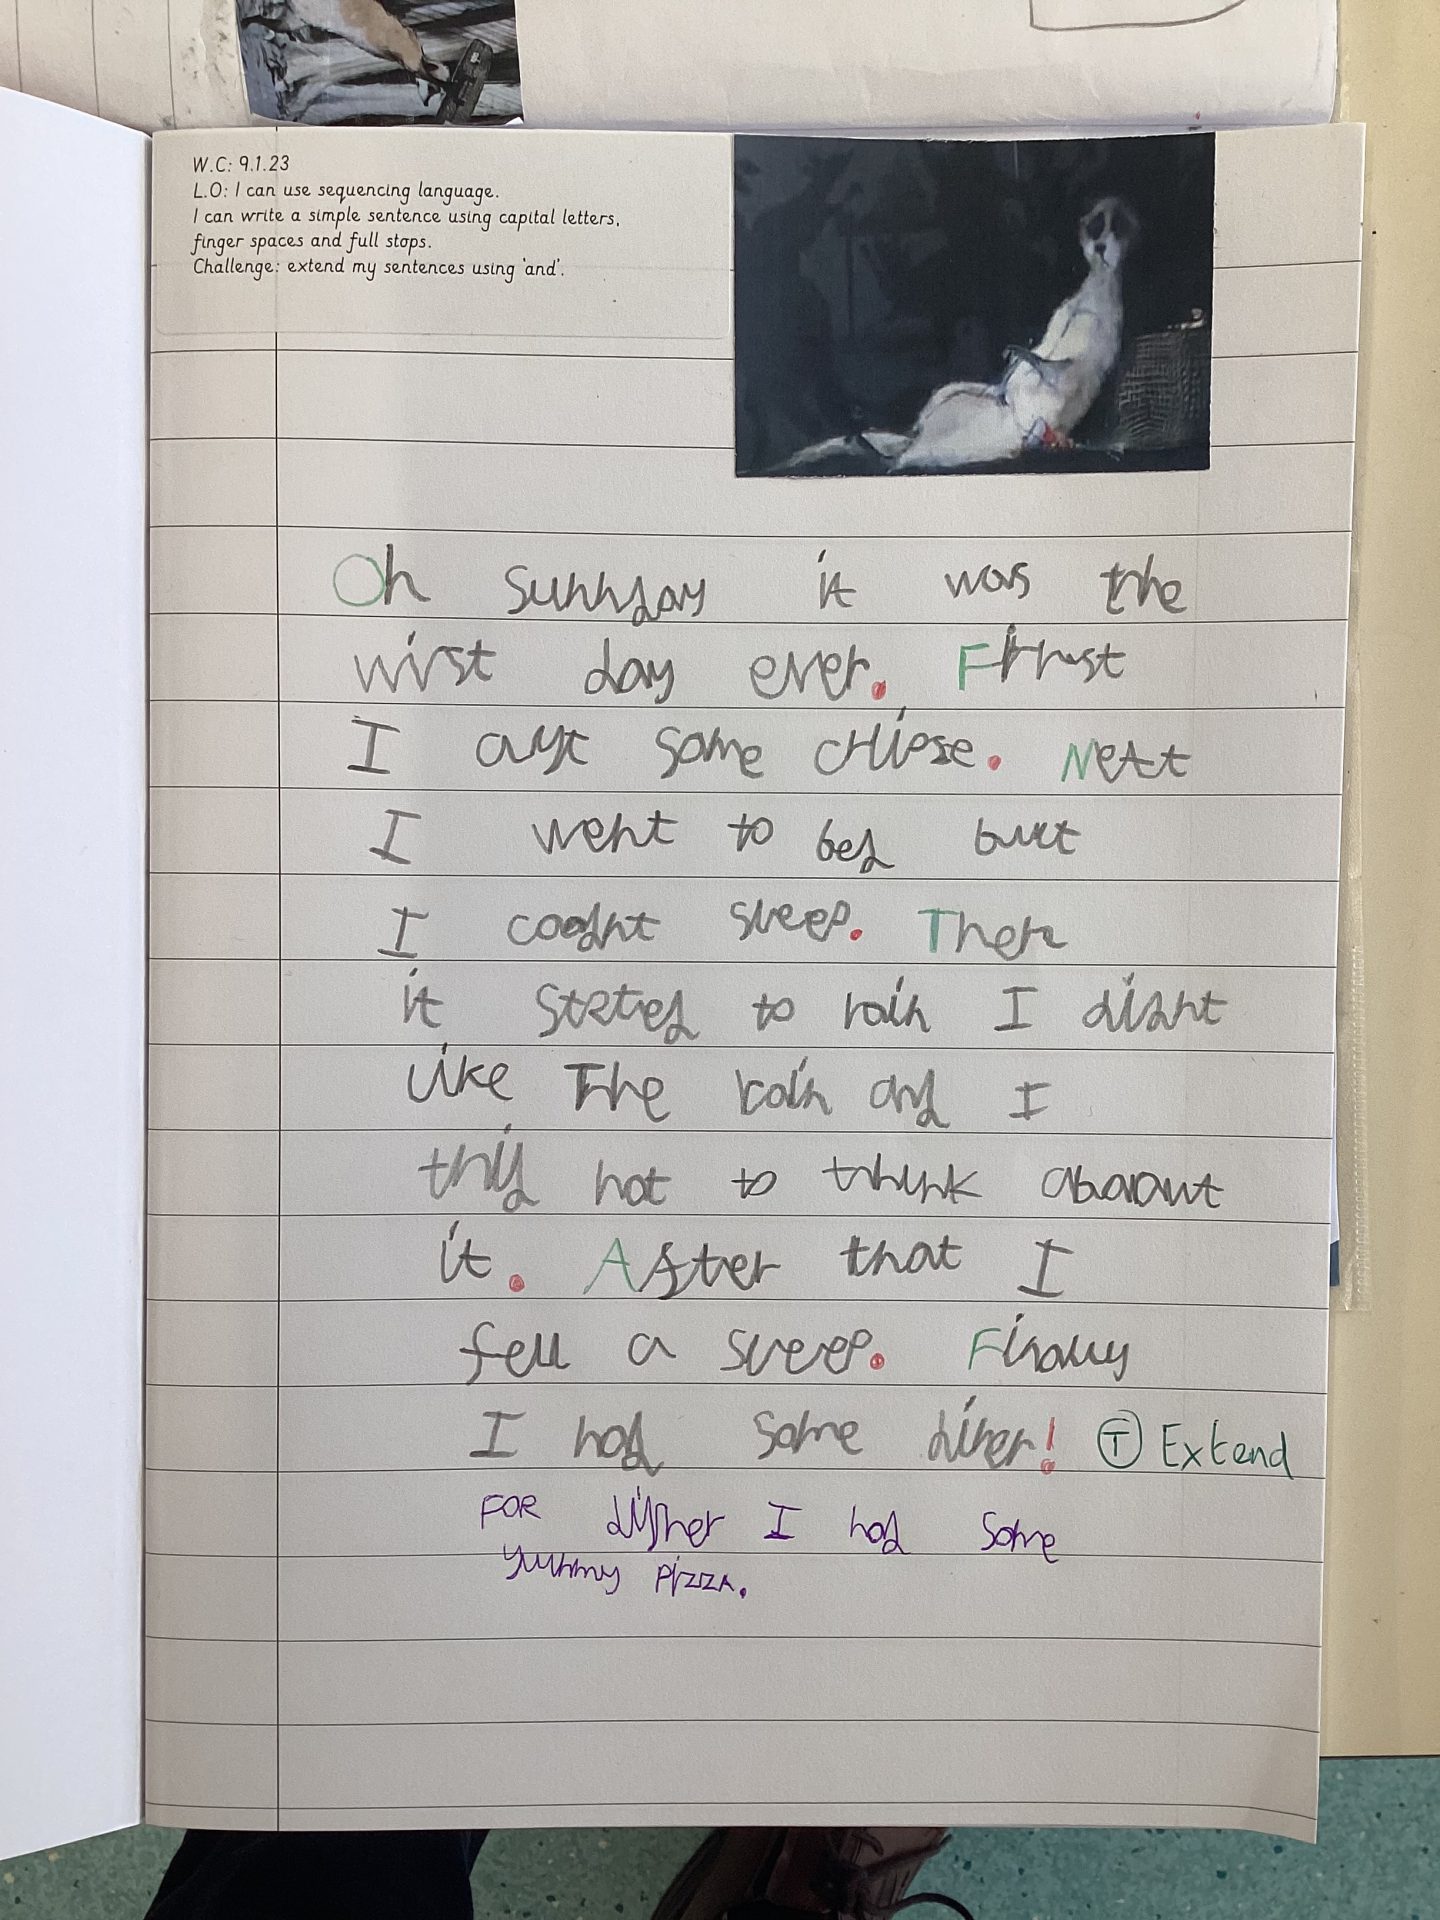 W.C: 9.1.23
L.O: I can use sequencing language.
I can write a simple sentence using capital letters,
finger spaces and full stops.
Challenge: extend my sentences using 'and'.
On Sunnday it was the
wirst day ever. First
I ayt some chipse. Next
I went to bed but
I coodnt sleep. Then
it stated to rain I didnt
like The rain and I
not to think about
it. After that I
fell a sleep. Finally
I had some diner! T Extend
FOR dinner I had some
yummy pizza.